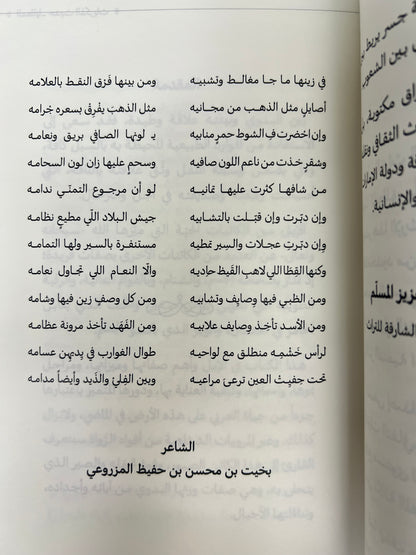 في زينها ما جـا مغالـط وتشبيـه ومن بينها فَرْق النقـط بالعلامه
أصايلٍ مثل الذهـب من مجانيه مثل الذهبَ يفْرِقْ بسعره جْرامه
وإن اخضرت في الشوط حمرٍ منابيه يـا لونهـا الصافي بريق ونعامه
وشقرٍ خذت من ناعم اللون صافيه وسحمٍ عليها زان لون السحامه
من شافهـا كثرت عليهـا ثمانيـه لو أن مرجـوع التمنّـي ندامه
وإن دبّرت وإن قبّلـت بالتشابيه جيش البـلاد اللّي مطيـعٍ نظامه
وإن دبّرتِ عجـلات والسِير تمطيه مستنفـرة بالسيـر ولها التمامـه
وكنها القِطا اللي لاهبِ القَيظ حاديه والّا النعـام اللي تجـاول نعامه
ومن الظبي فيها وصايف وتشابيه ومن كل وصفٍ زين فيها وشامه
ومن الأسد تأخِـذ وصايف علابيه ومن الفَهَـد تأخذ مرونة عظامه
لرأس خَشْمِـه منطلـق مع لواحيه طوال الغوارب في يديهن عسامه
تحت جفيت العين ترعى مراعيـه وبين الفِليْ والذّيد وأيضاً مدامه
الشاعر
بخيت بن محسن بن حفيظ المزروعي
جسر يربط
بين الشعوب
مكتوبة
الثقافي
ودولة الإمارات
والإنسانية.
عزيز المسلّم
الشارقة للتراث